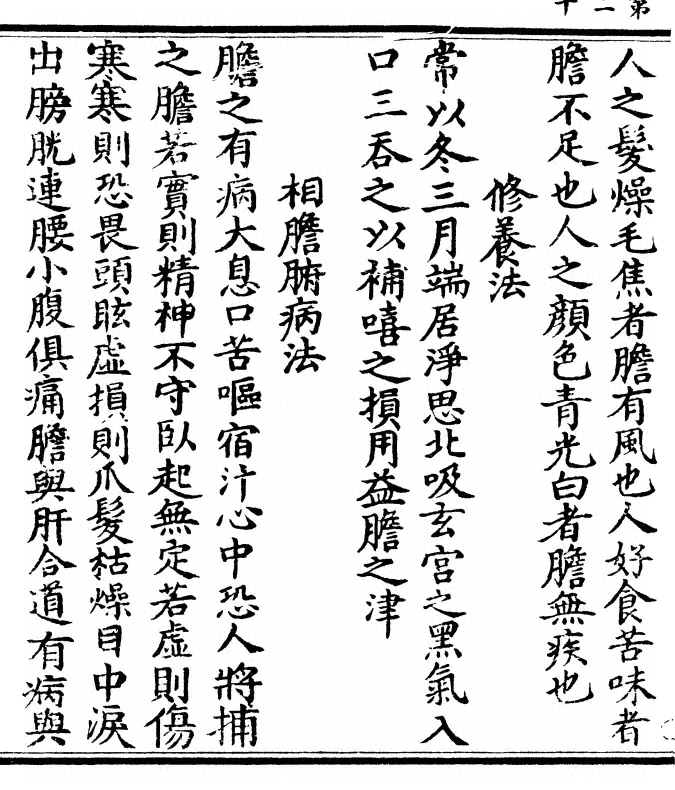 第二十
人之髮燥毛焦者膽有風也人好食苦味者
膽不足也人之顔色青光白者膽無疾也
修養法
常以冬三月端居淨思北吸玄宮之黑氣入
口三吞之以補嘻之損用益膽之津
相膽腑病法
膽之有病大息口苦嘔宿汁心中恐人將捕
之膽若實則精神不守臥起無定若虛則傷
寒寒則恐畏頭眩虛損則爪髮枯燥目中淚
出膀胱連腰小腹俱痛膽與肝合道有病與